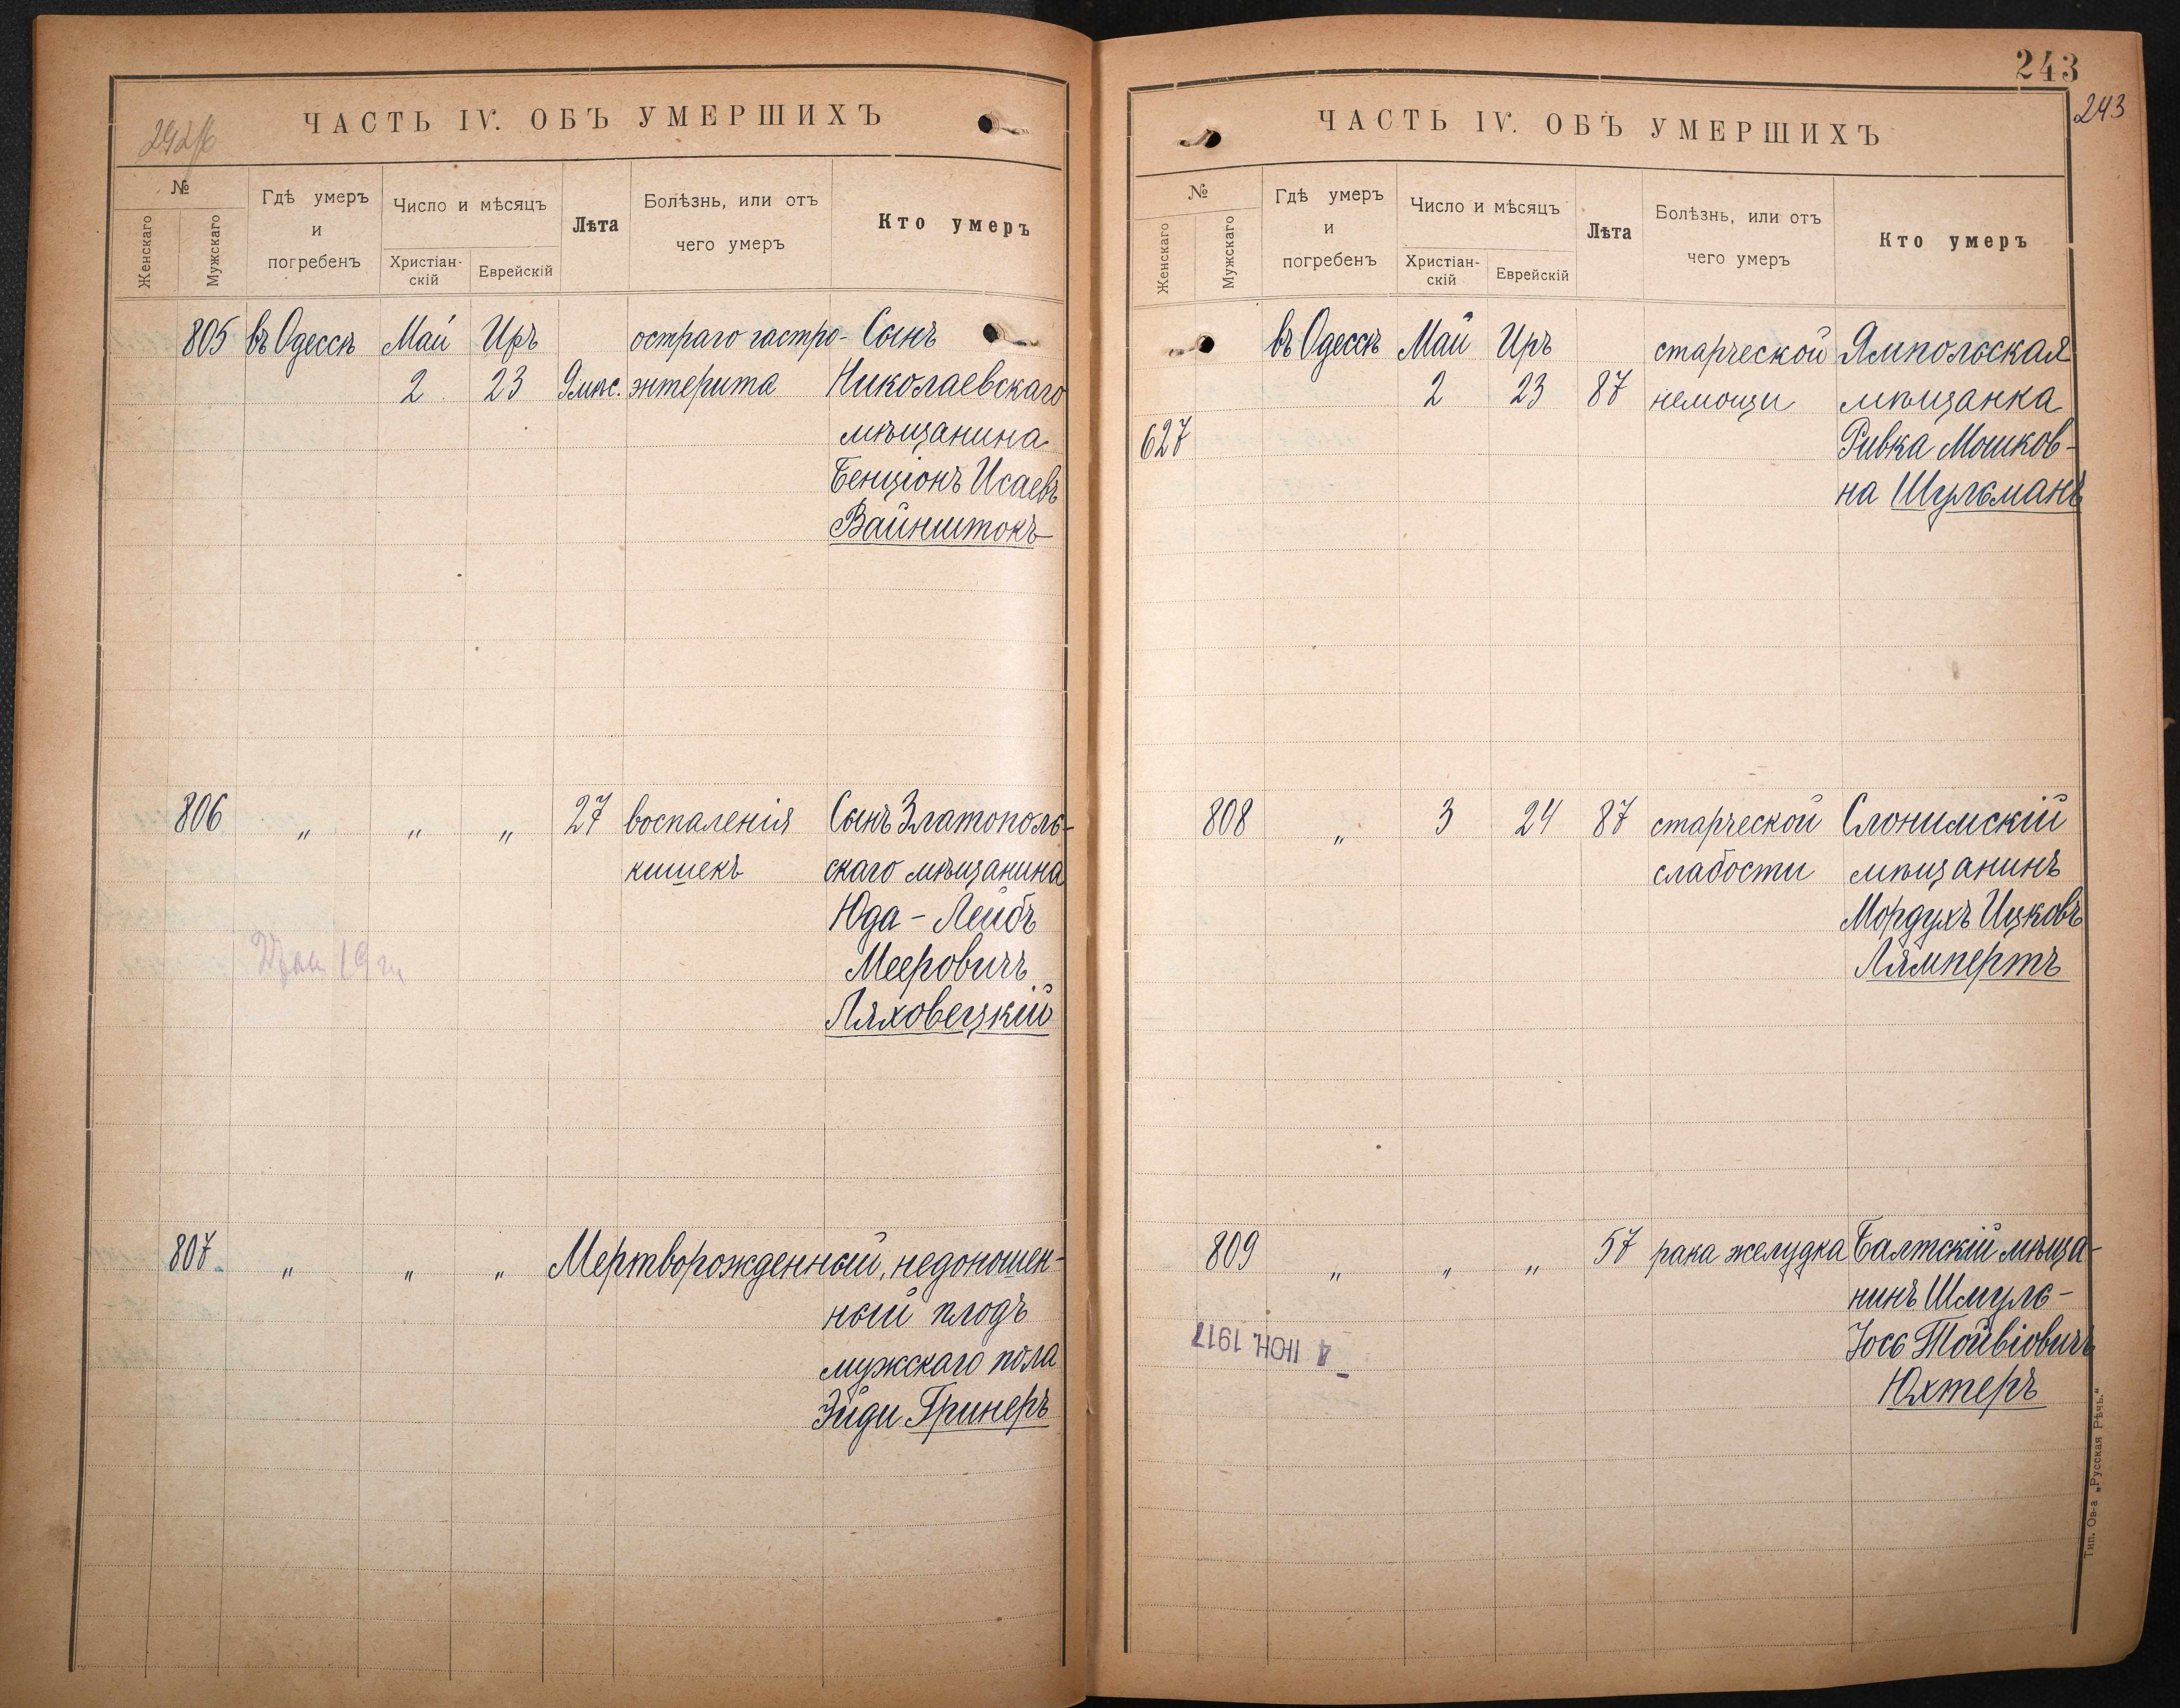 ЧАСТЬ IV. ОБЪ УМЕРШИХЪ
№
Женскаго
Мужскаго
Гдѣ умеръ
и
погребенъ
Число и мѣсяцъ
Христіан-
скій
Еврейскій
Лѣта
Болѣзнь, или отъ
чего умеръ
Кто умеръ
805 въ Одессѣ Май Иръ остраго гастро- Сынъ
2 23 9 мѣс. энтерита Николаевскаго
мѣщанина
Бенціонъ Исаевъ
Вайнштокъ
806 „ „ „ 27 воспаленія Сынъ Златополь-
кишекъ скаго мѣщанина
Юда - Лейбъ
Мееровичъ
Ляховецкій
807 „ „ „ Мертворожденный, недоношен-
ный плодъ
мужскаго пола
Эйди Гринеръ
243
243
ЧАСТЬ IV. ОБЪ УМЕРШИХЪ
№
Женскаго
Мужскаго
Гдѣ умеръ
и
погребенъ
Число и мѣсяцъ
Христіан-
скій
Еврейскій
Лѣта
Болѣзнь, или отъ
чего умеръ
Кто умеръ
въ Одессѣ Май Иръ старческой Ямпольская
2 23 87 немощи мѣщанка
627 Ривка Мошков-
на Шульманъ
808 „ 3 24 87 старческой Слонимскій
слабости мѣщанинъ
Мордухъ Ицковъ
Лямпертъ
809 „ „ „ 57 рака желудка Балтскій мѣща-
нинъ Шмуль-
Іось Тойвіовичъ
Юхтеръ
4 ІЮН. 1917
Тип. Ов-а „Русская Рѣчь.“